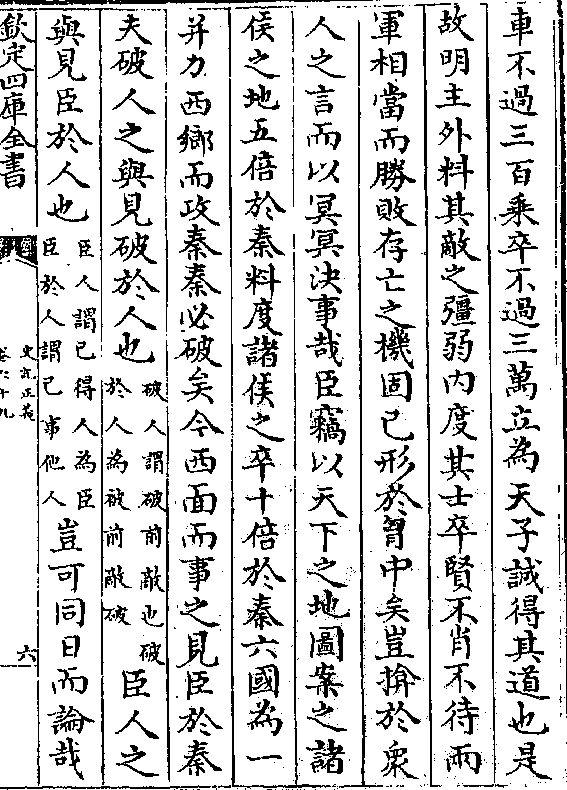 車不過三百乗卒不過三萬立為天子誠得其道也是
故明主外料其敵之彊弱内度其士卒賢不肖不待兩
軍相當而勝敗存亡之機固已形於胷中矣豈揜於衆
人之言而以冥冥決事哉臣竊以天下之地圖案之諸
侯之地五倍於秦料度諸侯之卒十倍於秦六國為一
并力西鄉而攻秦秦必破矣今西面而事之見臣於秦
夫破人之與見破於人也破人謂破前敵也破於人為被前敵破臣人之
與見臣於人也臣人謂已得人為臣臣於人謂已事他人豈可同日而論哉
欽定四庫全書
史記正義
卷六十九
六